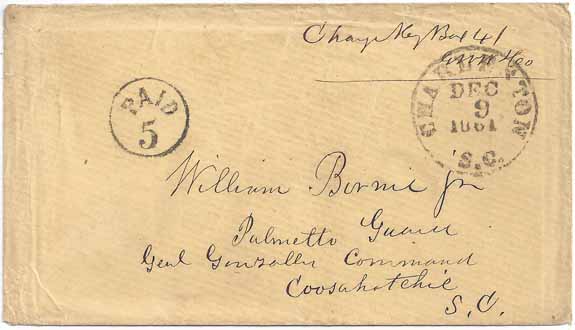 Charge My Box 41
PAID
5
CHARLESTON
DEC
9
1861
S.C.
William Birnie Jr
Palmetto Guard
Genl Gonzalles Command
Coosahatchie
S. C.